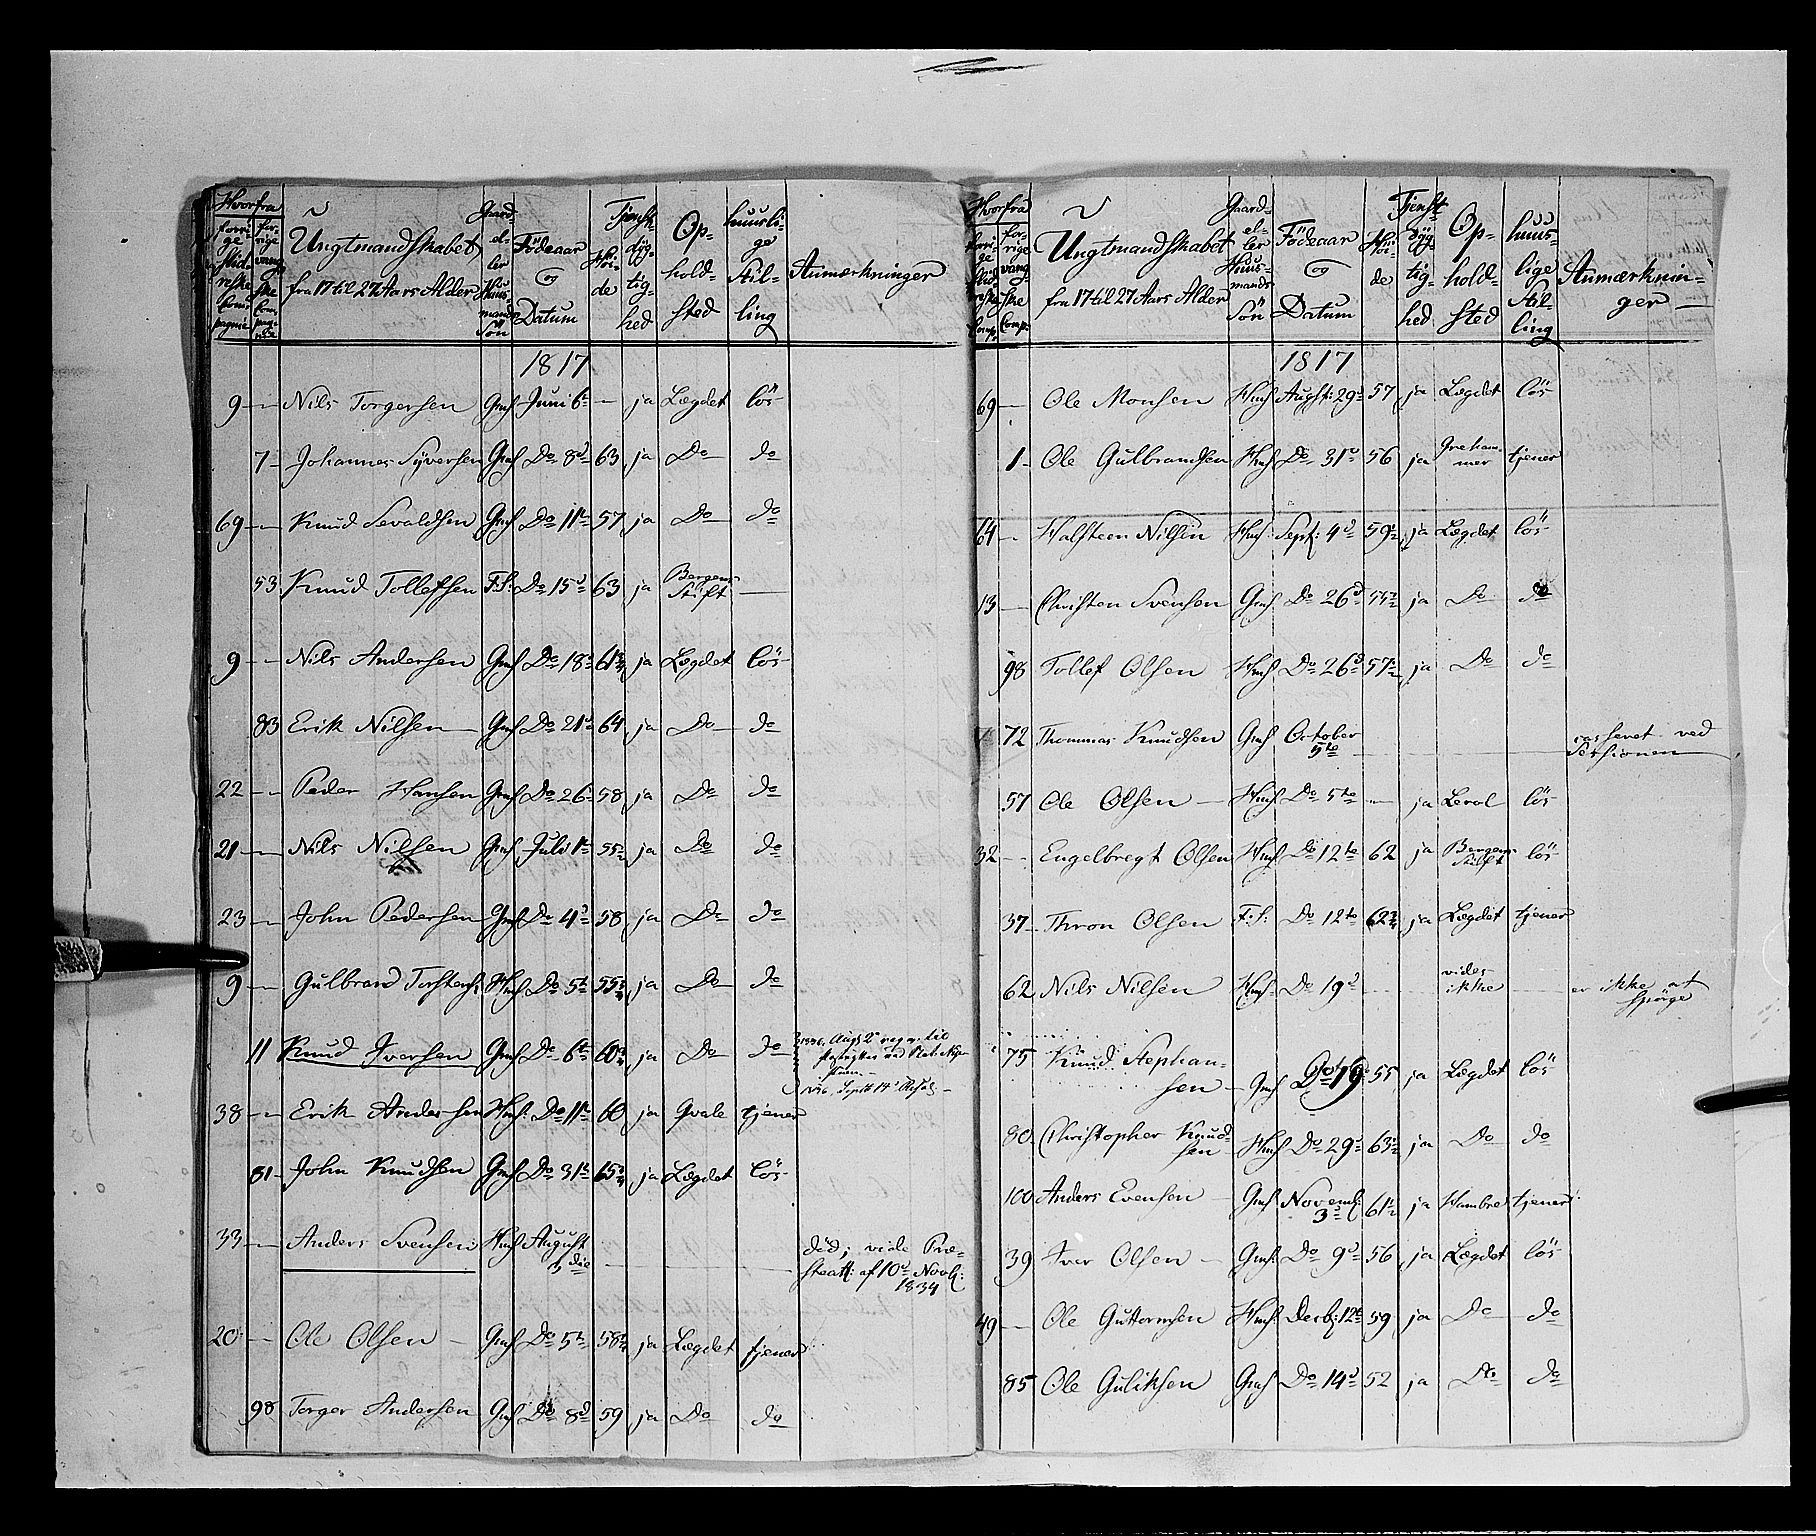 Hvorfra
forrige Slidreske Compagnie
forrige vangske Compagnie
Ungtmandskabet
fra 17 til 27 Aars Alder
Gaard- eller Huusmands Sön
Födeaar og Datum
Höide
Tjenstdygtighed
Ophold-sted
huuslige Stilling
Anmærkninger
1817
9 — Nils Torgersen Gmsf Juni 6te — ja Lægdet lös
7 Johannes Syversen Gmsf Do 8d 63 ja Do do
69 — Knud Sevaldsen Gmsf Do 11te 57 ja Do do
53 Knud Tollefsen F.S: Do 15d 63 ja Bergens Stift —
9 — Nils Andersen Gmsf Do 18d 61 ja Lægdet lös
83 Erik Nilsen Gmsf Do 21d 64 ja Do do
22 — Peder Hansen Gmsf Do 26d 58 ja Do do
21 — Nils Nilsen Gmsf Juli 1te 55½ ja Do do
23 — John Pedersen Gmsf Do 4d 58 ja Do do
9 — Gulbrand Torstens: Hmsf Do 5te 55¾ ja Do do
11 Knud Iversen Gmsf Do 6te 60¾ ja Do do
1836, Aug 2
38 — Erik Andersen Hmsf: Do 11te 60 ja Qvale tjener
81 John Knudsen Gmsf Do 31te 65¾ ja Lægdet lös
33 — Anders Svensen Hmsf August 3die — död; vide Præ-
steatt: af 10d Novb:
1834
20 — Ole Olsen — Gmsf Do 5te 58¾ ja Lægdet tjener
98 Torger Andersen Gmsf Do 8d 59 ja Do do
Hvorfra
forrige Slidreske Comp:
forrige vangske Comp:
Ungtmandskabet
fra 17 til 27 Aars Alder
Gaard- eller Huusmands Sön
Födeaar og Datum
Höide
Tjenstdygtighed
Ophold-sted
huuslige Stilling
Anmærknin-
ger —
1817
69 — Ole Monsen Hmsf August: 29d 57 ja Lægdet lös
1 Ole Gulbrandsen Hmsf Do 31d 56 ja tjener
64 — Halsteen Nilsen Hmsf: Sept: 4d 59½ ja Lægdet lös
13 — Christen Svensen Gmsf. Do 26d ja Do do
98 Tollef Olsen Hmsf Do 26d 57½ ja Do do
72 Thommas Knudsen Gmsf October 5te — casseret ved
Sessionen
57 Ole Olsen — Hmsf Do 5te — ja Lerol lös
32 — Engelbregt Olsen Hmsf Do 12te 62 ja Bergens Stift lös
37 Thron Olsen F:S: Do 12te 62¾ ja Lægdet tjener
62 Nils Nilsen Hmsf: Do 19d — vides ikke — er ikke at
spörge
75 Knud Stephan-
sen — Gmsf Do 19 55 ja Lægdet lös
80 Christopher Knud-
sen Hmsf Do 29d 63½ ja Do do
100 Anders Evensen — Gmsf Novemb: 3d 61½ ja Hambre tjener
39 Iver Olsen — Gmsf: Do 9d 56 ja Lægdet lös
49 — Ole Guttormsen Hmsf: Decb: 12te 59 ja Do do
85 Ole Guliksen Gmsf Do 14d 52 ja Do do